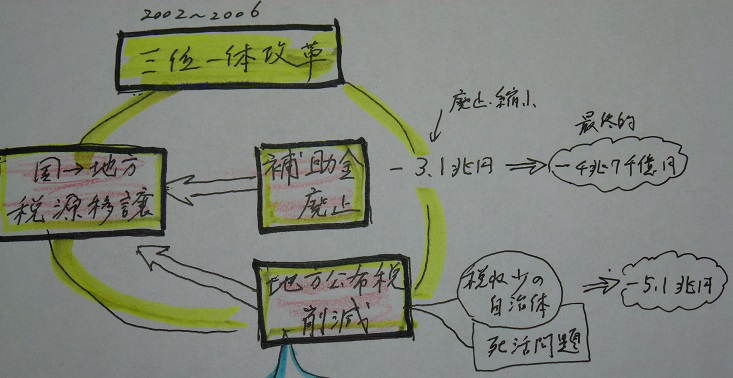 2002～2006
三位一体改革
廃止・縮小
最終的
国→地方
税源移譲
補助金
廃止
-3.1兆円
-4兆7千億円
地方公布税
削減
税収少の
自治体
死活問題
-5.1兆円